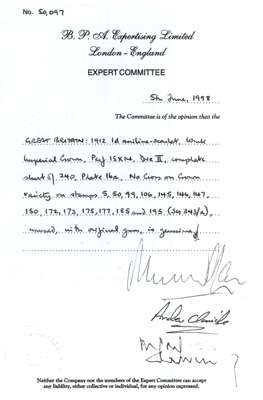 No. 50,097
B. P. A. Expertising Limited
London - England
EXPERT COMMITTEE
5th June, 1998
The Committee is of the opinion that the
GREAT BRITAIN: 1912 1d aniline-scarlet, Wmk
Imperial Crown, Perf 15X14. Die II, complete
sheet of 240, Plate 16a. No Cross on Crown
variety on stamps 5, 50, 99, 106, 145, 146, 147,
150, 172, 173, 175, 177, 185 and 195. (SG 343/a),
unused, with original gum, is genuine
Neither the Company nor the members of the Expert Committee can accept
any liability, either collective or individual, for any opinion expressed.